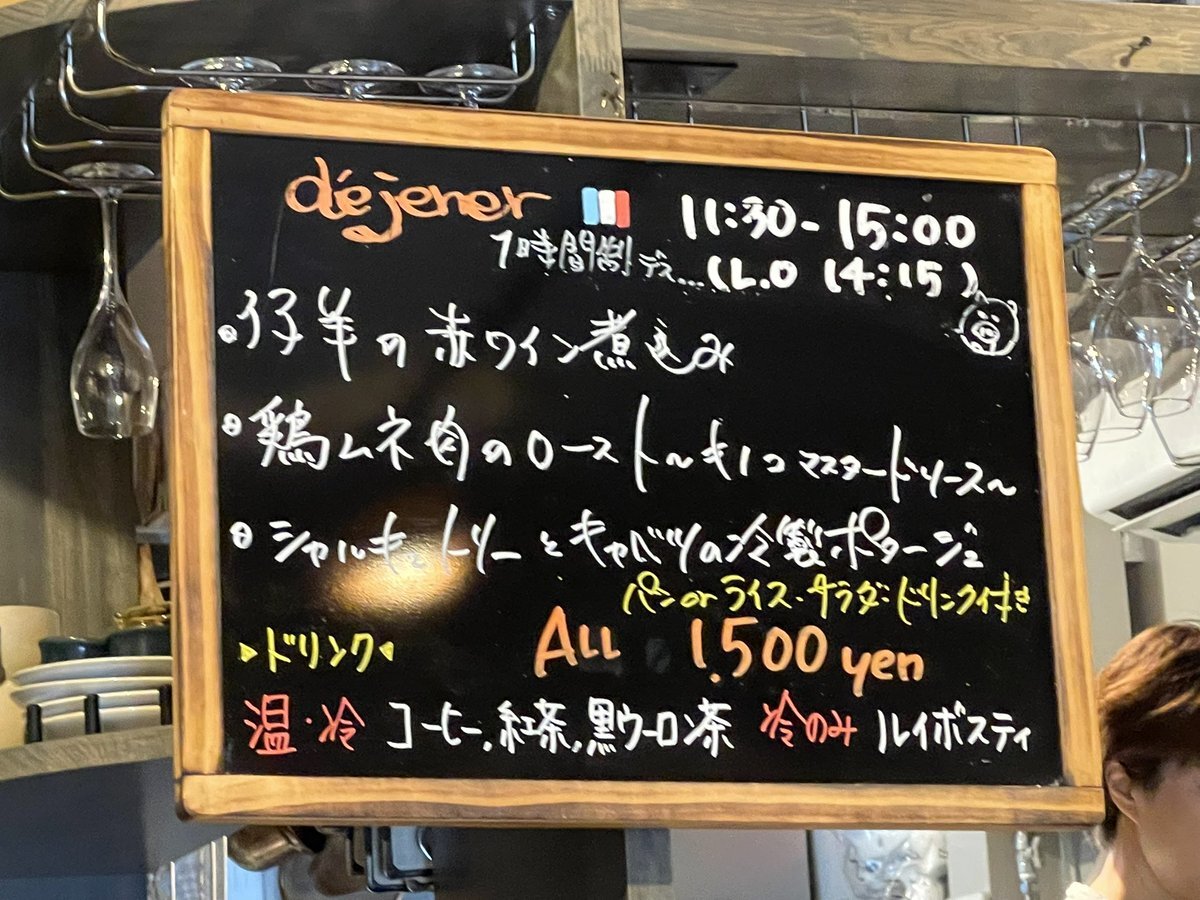 déjener 11:30-15:00
1時間制デス...(L.O 14:15)
・仔羊の赤ワイン煮込み
・鶏ムネ肉のロースト～キノコマスタードソース～
・シャルキュトリーとキャベツの冷製ポタージュ
パンorライス・サラダ・ドリンク付き
ALL 1.500 yen
▷ドリンク◁
温・冷 コーヒー,紅茶,黒ウーロン茶 冷のみ ルイボスティ